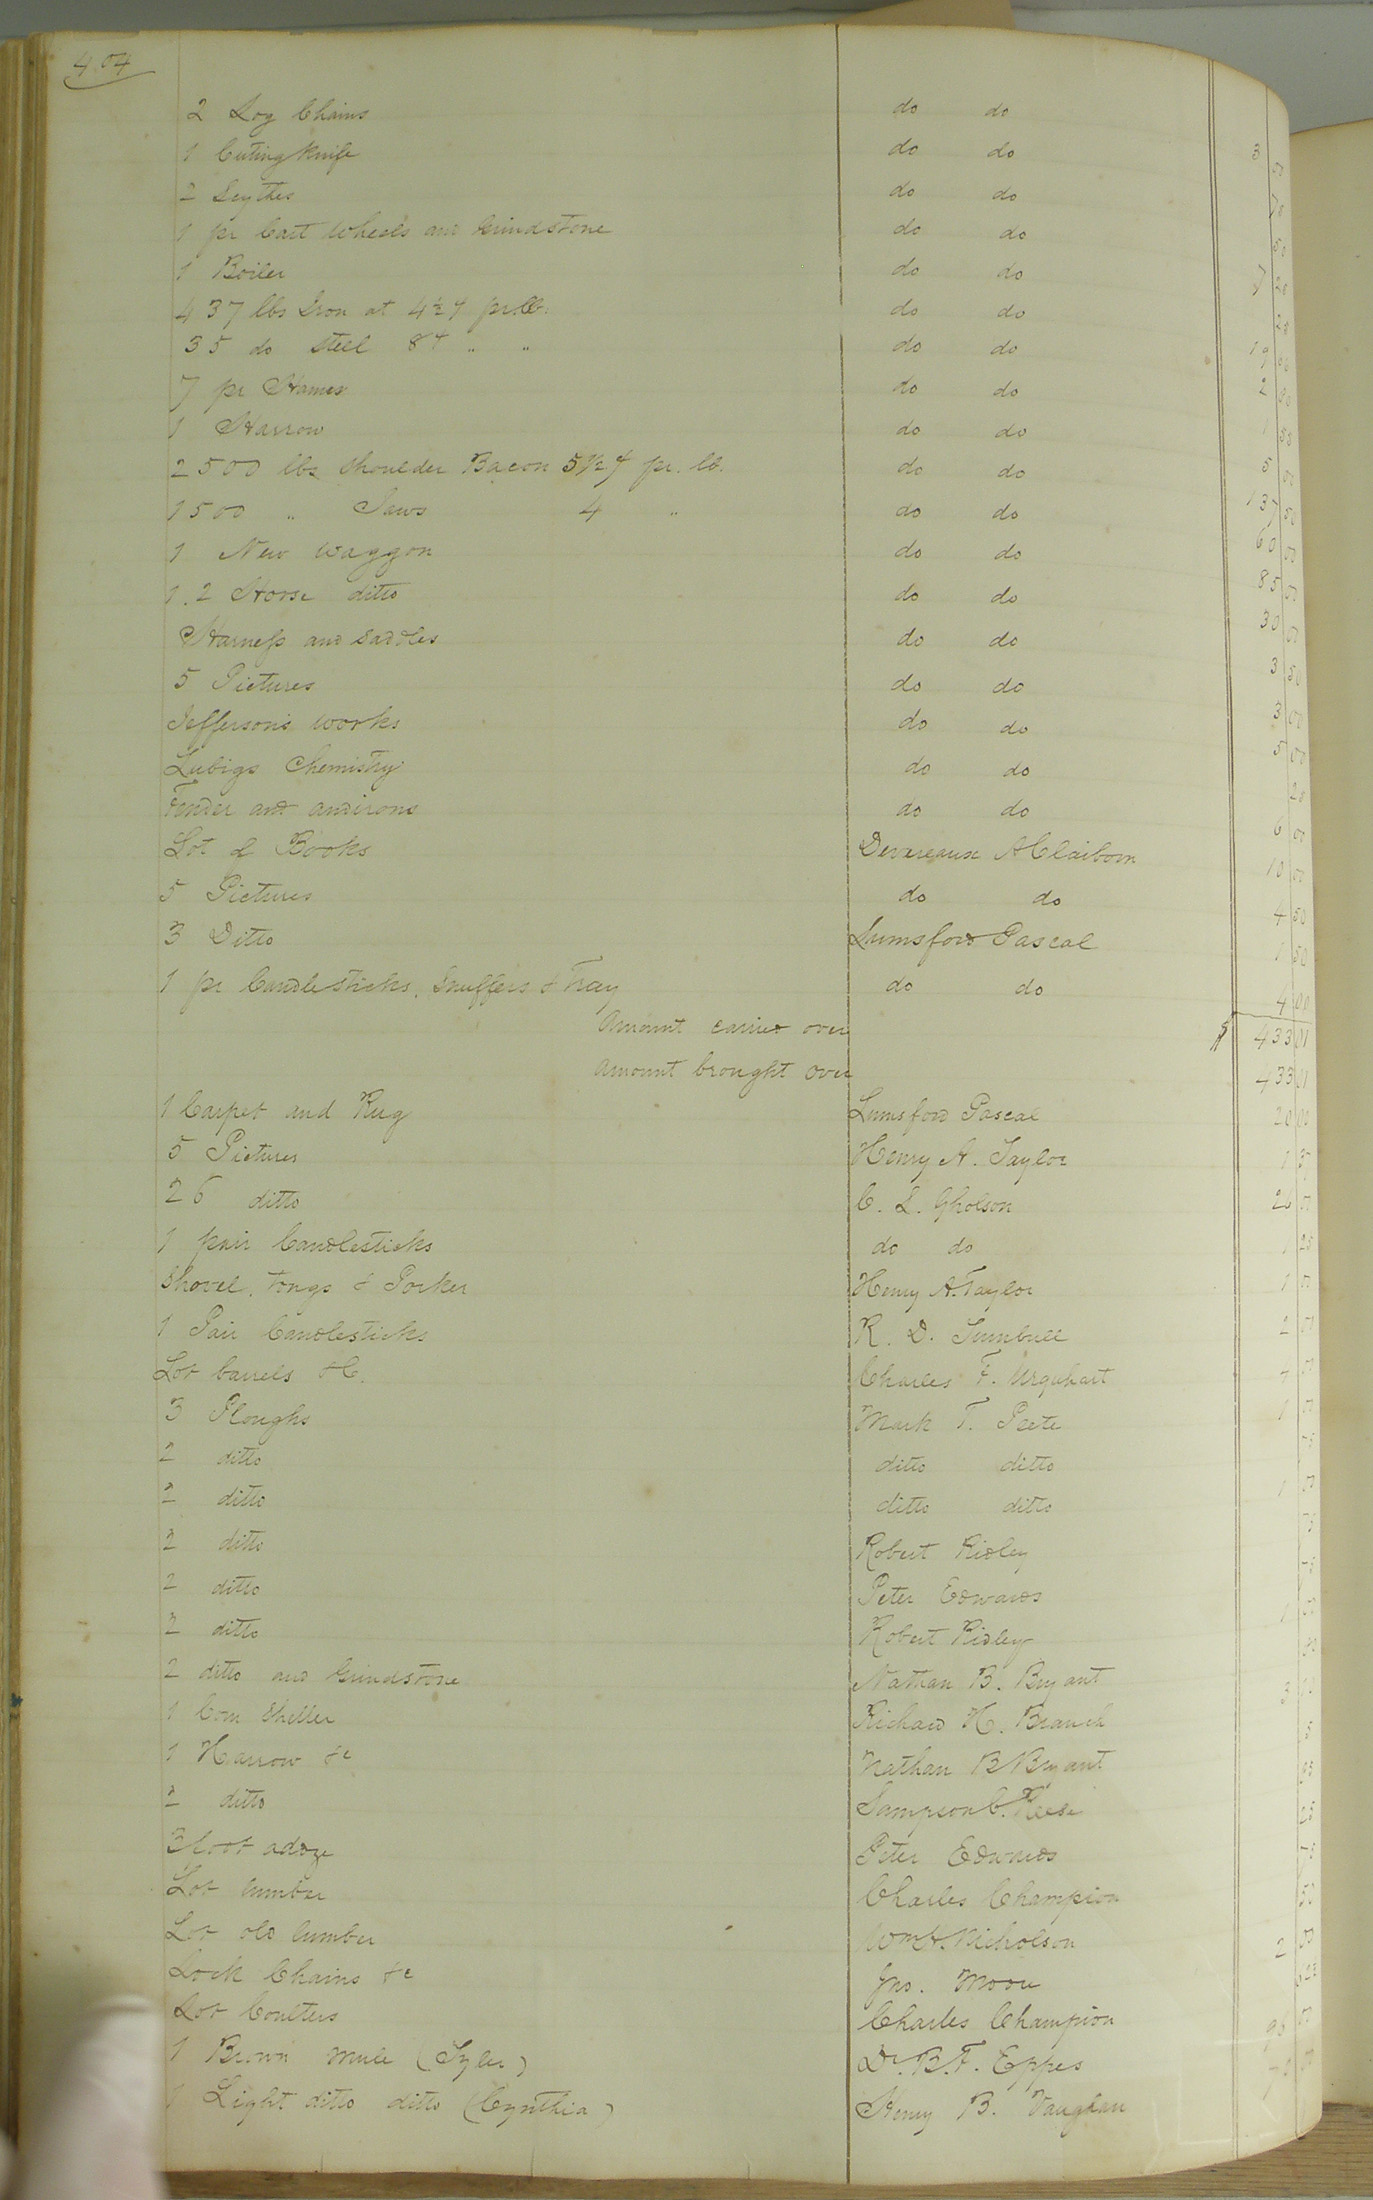 404
2 Log Chains do do
1 Cuting Knife do do 3
2 Scythes do do
1 pr Cart Wheels and Grindstone do do 50
1 Boiler do do
437 lbs Iron at 4½ ¢ pr. lb. do do
35 do Steel 8¢ " " do do
7 pr Hames do do 2 00
1 Harrow do do 1 50
2500 lbs Shoulder Bacon 5½ ¢ pr. lb. do do 137 50
1500 " Jaws 4 " do do 60 00
1 New Waggon do do 85 00
1. 2 Horse ditto do do 30 00
Harness and Saddles do do 3 50
5 Pictures do do 3 00
Jeffersons works do do 5 00
Leibigs Chemistry do do
Fender and andirons do do 6 00
Lot of Books Devereaux A Claiborn 10 00
5 Pictures do do 4 50
3 Ditto Lumsford Pascal 1 50
1 pr Candlesticks, Snuffers & Tray do do 4 00
Amount carried over $ 433 01
Amount brought over 433 01
1 Carpet and Rug Lumsford Pascal 20 00
5 Pictures Henry A. Taylor 1
26 ditto C. L. Gholson 26 00
1 pair Candlesticks do do 1 25
Shovel, Tongs & Porker Henry A. Taylor 1 00
1 Pair Candlesticks R. D. Turnbull 2 00
Lot barrels &C. Charles F. Urquhart
3 Ploughs Mark T. Peete 1
2 ditto ditto ditto
2 ditto ditto ditto 1 00
2 ditto Robert Ridley
2 ditto Peter Edwards
2 ditto Robert Ridley
2 ditto and Grindstone Nathan B. Bryant 3
1 Corn Sheller Richard H. Branch
1 Harrow &c Nathan B Bryant
2 ditto Sampson C. Reese 25
3 foot adze Peter Edwards
Lot lumber Charles Champion 50
Lot old lumber Wm H. Nicholson 2 00
Lock Chains &c Jno. Moore
Lot Coulters Charles Champion
1 Brown Mule (Tyler) Dr. B. F. Eppes
1 Light ditto ditto (Cynthia) Henry B. Vaughan